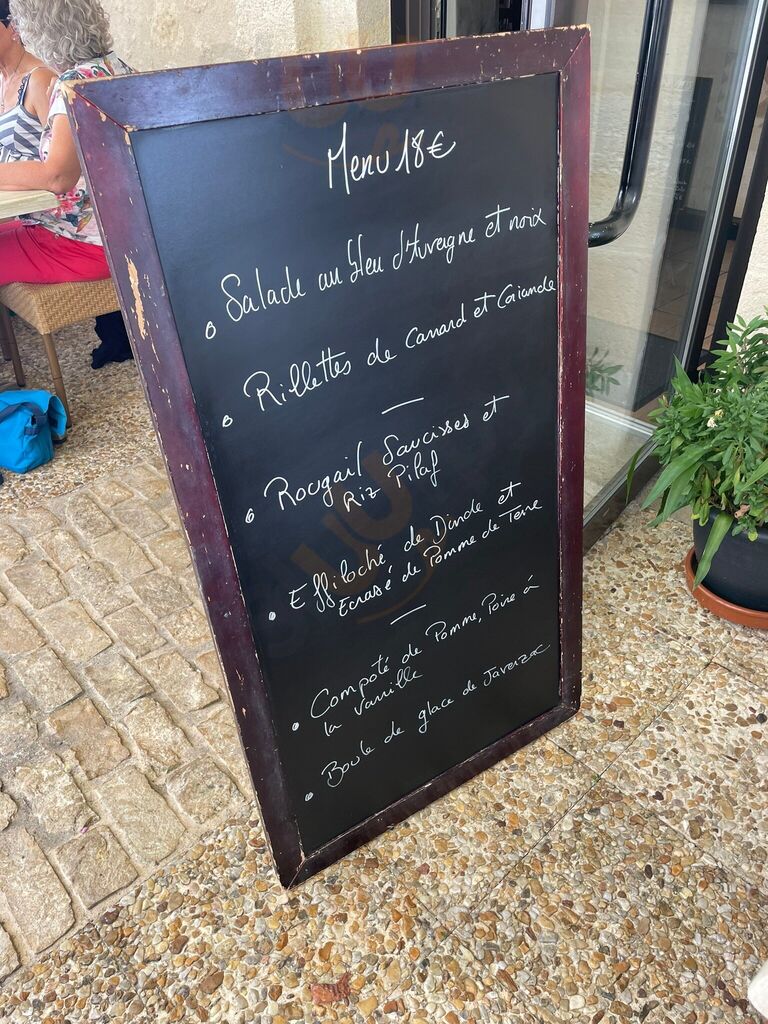 Menu 18€
Salade au bleu d'Auvergne et noix
Rillettes de Canard et Coriande
Rougail Saucisses et
Riz Pilaf
Effiloché de Dinde et
Ecrasé de Pomme de Terre
Compoté de Pomme, Poire à
la Vanille
Boule de glace de Javerzac